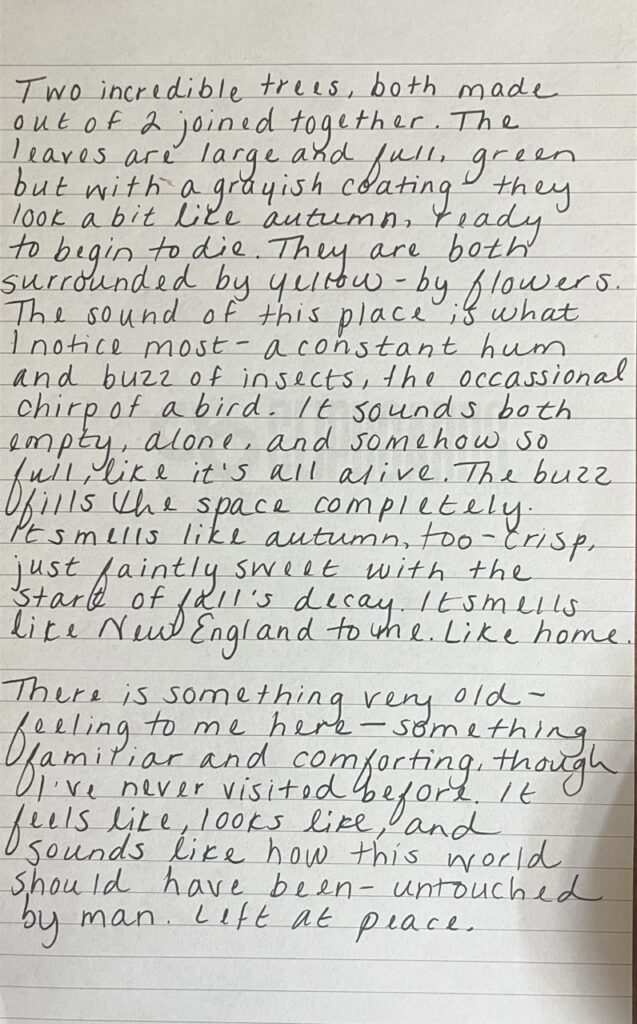 Two incredible trees, both made
out of 2 joined together. The
leaves are large and full, green
but with a grayish coating - they
look a bit like autumn, ready
to begin to die. They are both
surrounded by yellow - by flowers.
The sound of this place is what
I notice most - a constant hum
and buzz of insects, the occassional
chirp of a bird. It sounds both
empty, alone, and somehow so
full, like it's all alive. The buzz
fills the space completely.
It smells like autumn, too - crisp,
just faintly sweet with the
start of fall's decay. It smells
like New England to me. Like home.
There is something very old -
feeling to me here - something
familiar and comforting, though
I've never visited before. It
feels like, looks like, and
sounds like how this world
should have been - untouched
by man. Left at peace.